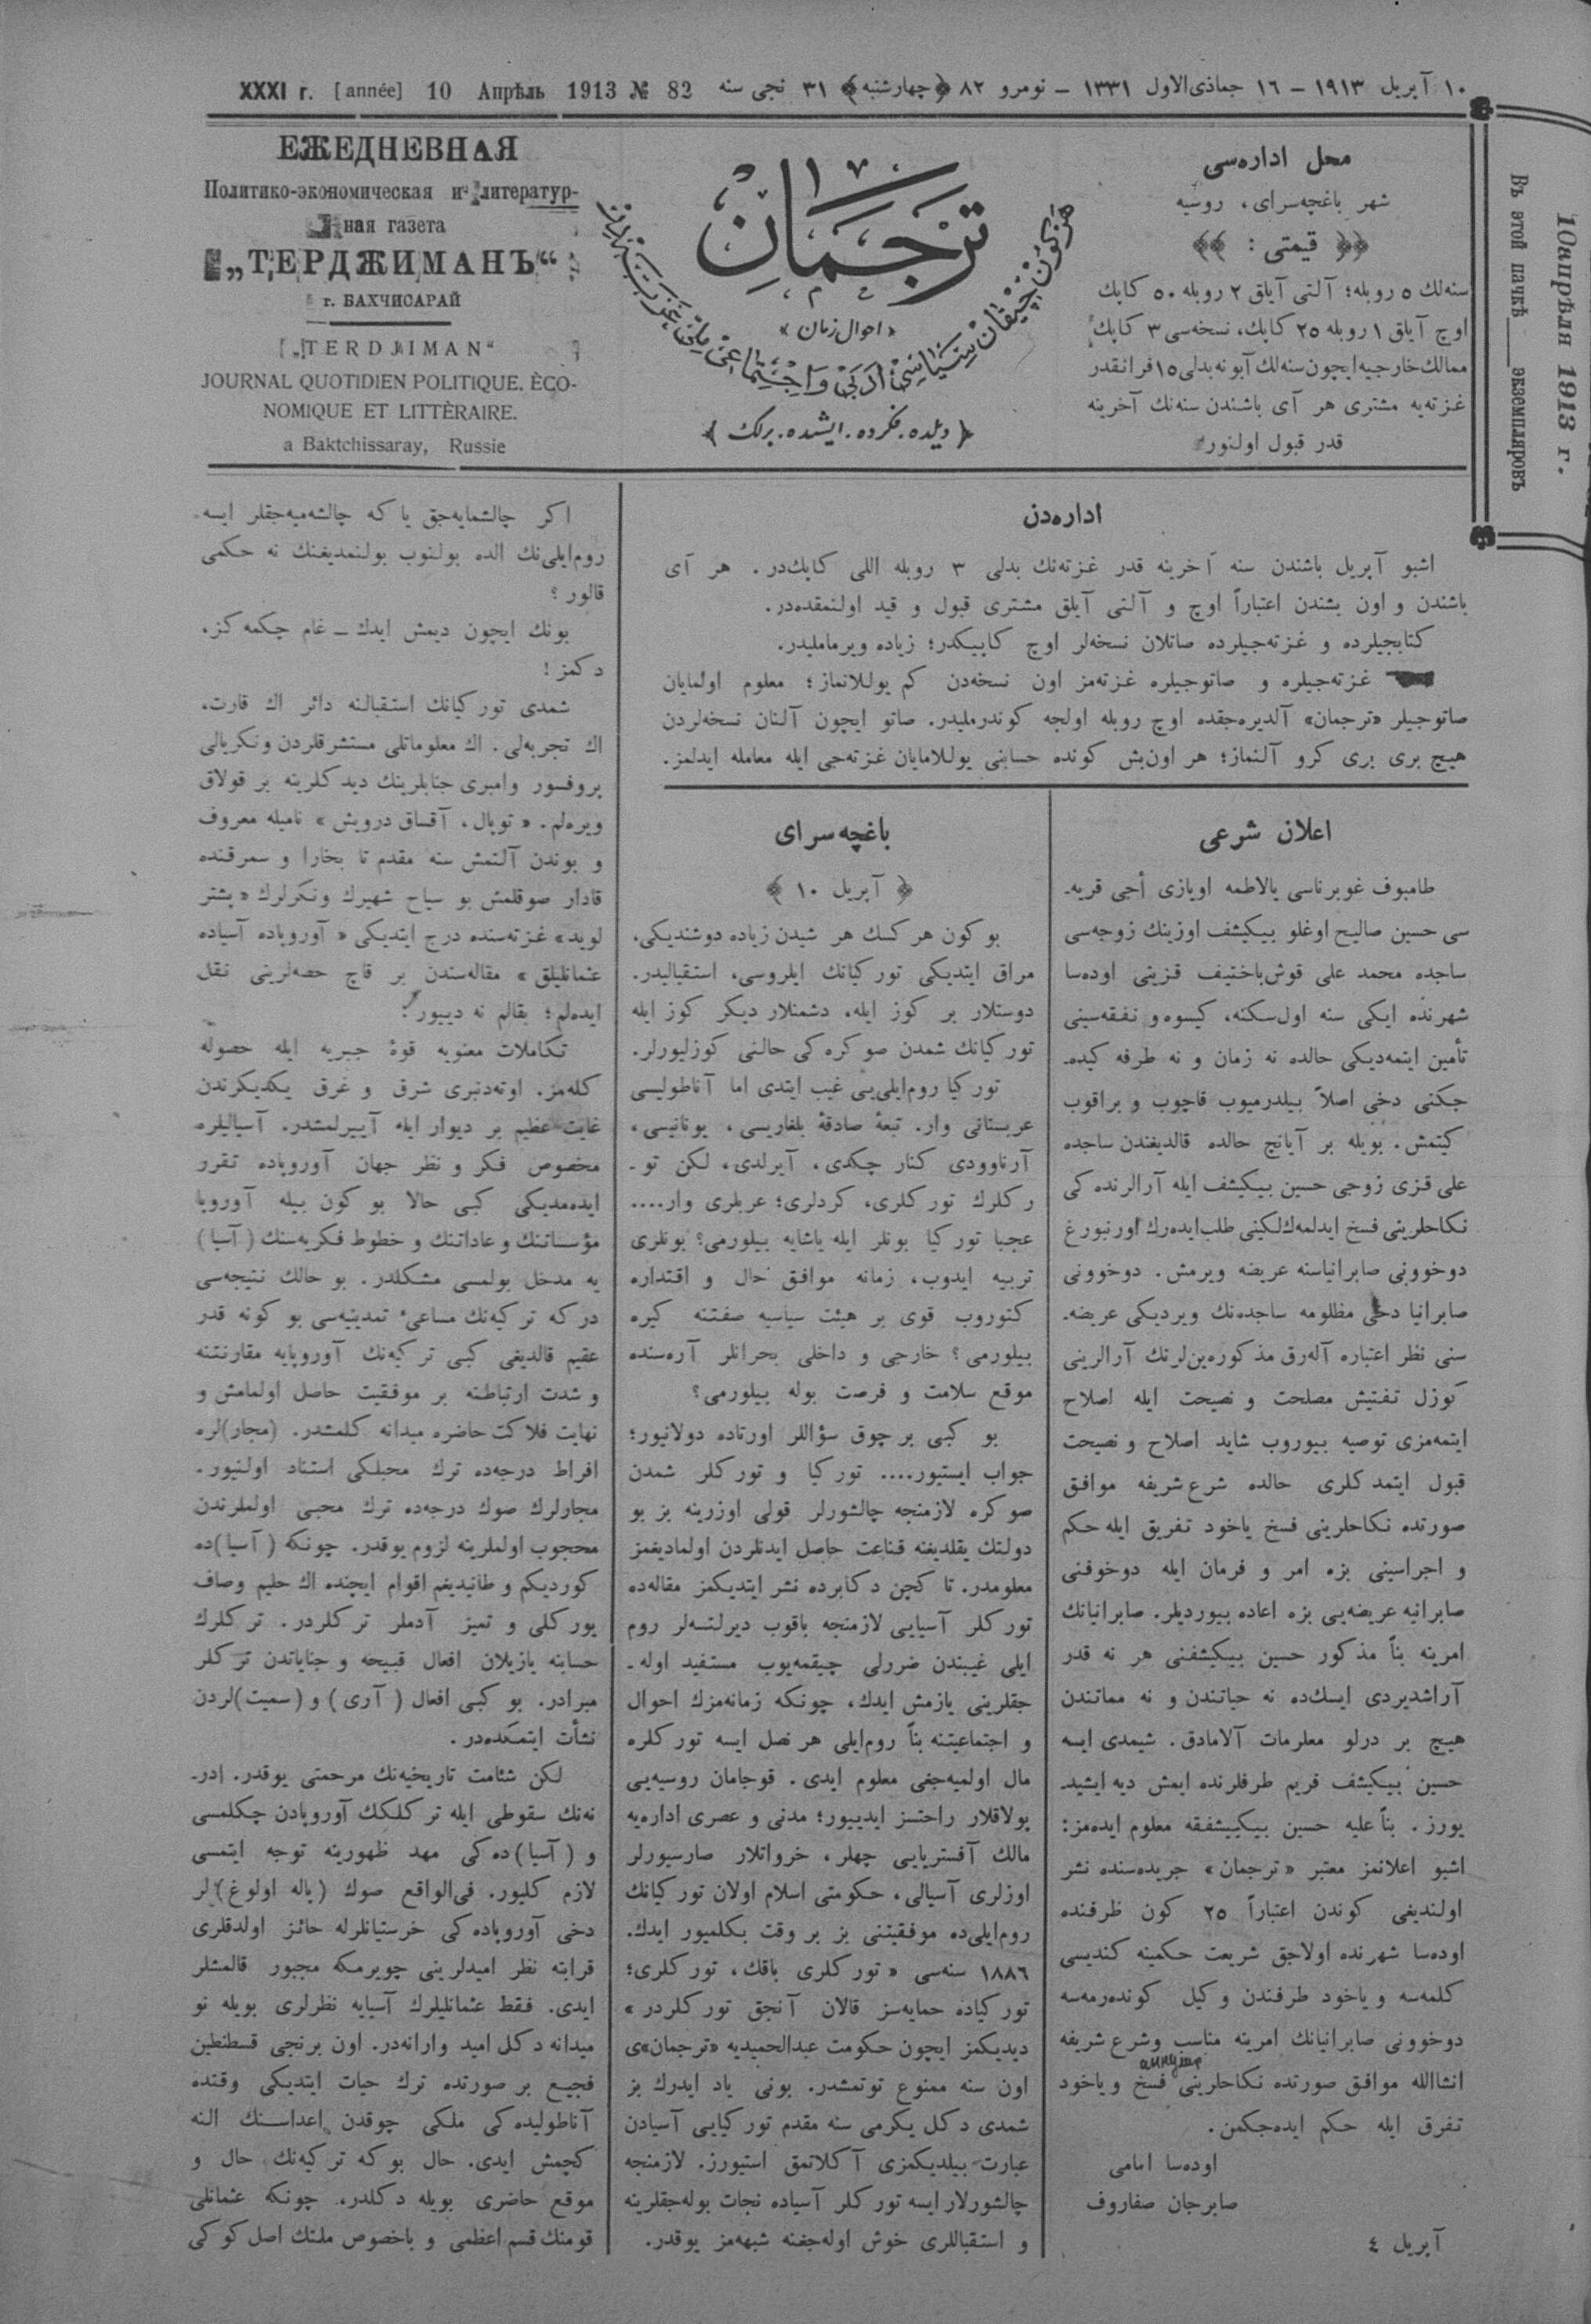 ۱۰ آپریل ۱۹۱۳ – ۱٦ جماذی‌الاول ۱۳۳۱ – نومرو ۸۲ ﴿چهارشنبه﴾ ۳۱ نجی سنه
XXXI г. [année] 10 Апрѣль 1913 № 82
Въ этой пачкѣ ____ экземпляровъ
10 апрѣля 1913 г.
محل اداره‌سی
شهر باغچه‌سرای، روسیه
﴿﴿ قیمتی : ﴾﴾
سنه‌لك ٥ روبله؛ آلتی آیلق ۲ روبله ٥۰ كاپك
اوچ آیلق ۱ روبله ۲٥ كاپك، نسخه‌سی ۳ كاپك
ممالك خارجیه ایچون سنه‌لك آبونه بدلی ۱٥ فرانقدر
غزته‌یه مشتری هر آی باشندن سنه‌نك آخرینه
قدر قبول اولنور
ترجمان
«احوال زمان»
هر كون چیقان سیاسی، ادبی و اجتماعی ملی غزته‌در
﴿ دیلده. فكرده. ایشده. برلك ﴾
ЕЖЕДНЕВНАЯ
Политико-экономическая и литератур-
ная газета
„ТЕРДЖИМАНЪ“
г. БАХЧИСАРАЙ
„TERDJIMAN“
JOURNAL QUOTIDIEN POLITIQUE. ÈCO-
NOMIQUE ET LITTÈRAIRE.
a Baktchissaray, Russie
اداره‌دن
اشبو آپریل باشندن سنه آخرینه قدر غزته‌نك بدلی ۳ روبله اللی كاپك‌در. هر آی
باشندن و اون بشندن اعتباراً اوچ و آلتی آیلق مشتری قبول و قید اولنمقده‌در.
كتابجیلرده و غزته‌جیلرده صاتلان نسخه‌لر اوچ كاپیكدر؛ زیاده ویرماملیدر.
غزته‌جیلره و صاتوجیلره غزته‌مز اون نسخه‌دن كم یوللانماز؛ معلوم اولمایان
صاتوجیلر «ترجمان» آلدیره‌جقده اوچ روبله اولجه كوندرملیدر. صاتو ایچون آلنان نسخه‌لردن
هیچ بری بری كرو آلنماز؛ هر اون‌بش كونده حسابنی یوللامایان غزته‌جی ایله معامله ایدلمز.
اعلان شرعی
طامبوف غوبرناسی یالاطمه اویازی أجی قریه‌ـ
سی حسین صالیح اوغلو بیكیشف اوزینك زوجه‌سی
ساجده محمد علی قوش‌باختیف قزینی اوده‌سا
شهرنده ایكی سنه اول‌سكنه، كیسوه و نفقه‌سینی
تأمین ایتمه‌دیكی حالده نه زمان و نه طرفه كیده‌ـ
جكنی دخی اصلاً بیلدرمیوب قاچوب و براقوب
كیتمش. بویله بر آیانچ حالده قالدیغندن ساجده
علی قزی زوجی حسین بیكیشف ایله آرالرنده كی
نكاحلرینی فسخ ایدلمه‌ك‌لكینی طلب‌ایده‌رك اورنبورغ
دوخوونی صابرانیاسنه عریضه ویرمش. دوخوونی
صابرانیا دخی مظلومه ساجده‌نك ویردیكی عریضه‌ـ
سنی نظر اعتباره آله‌رق مذكوره‌ین‌لرنك آرالرینی
كوزل تفتیش مصلحت و نصیحت ایله اصلاح
ایتمه‌مزی توصیه بیوروب شاید اصلاح و نصیحت
قبول ایتمدكلری حالده شرع شریفه موافق
صورتده نكاحلرینی فسخ یاخود تفریق ایله حكم
و اجراسینی بزه امر و فرمان ایله دوخوفنی
صابرانیه عریضه‌یی بزه اعاده بیوردیلر. صابرانیانك
امرینه بناً مذكور حسین بیكیشفنی هر نه قدر
آراشدیردی ایسك‌ده نه حیاتندن و نه مماتندن
هیچ بر درلو معلرمات آلامادق. شیمدی ایسه
حسین بیكیشف قریم طرفلرنده ایمش دیه ایشیدـ
یورز. بناً علیه حسین بیكییشفقه معلوم ایده‌مز:
اشبو اعلانمز معتبر «ترجمان» جریده‌سنده نشر
اولندیغی كوندن اعتباراً ۲٥ كون ظرفنده
اوده‌سا شهرنده اولاجق شریعت حكمینه كندیسی
كلمه‌سه ویاخود طرفندن وكیل كونده‌رمه‌سه
دوخوونی صابرانیانك امرینه مناسب وشرع شریفه
انشاالله موافق صورتده نكاحلرینی فسخ ویاخود
تفرق ایله حكم ایده‌جكمن.
اوده‌سا امامی
صابرجان صفاروف
آپریل ٤
باغچه سرای
﴿ آپریل ۱۰ ﴾
بو كون هر كسك هر شیدن زیاده دوشندیكی،
مراق ایتدیكی توركیانك ایلروسی، استقبالیدر.
دوستلار بر كوز ایله، دشمنلار دیكر كوز ایله
توركیانك شمدن صوكره‌كی حالنی كوزلیورلر.
توركیا روم‌ایلی‌یی غیب ایتدی اما آناطولیسی
عربستانی وار. تبعهٔ صادقهٔ بلغاریسی، یونانیسی،
آرناوودی كنار چكدی، آیرلدی، لكن توـ
ركلرك توركلری، كردلری؛ عربلری وار....
عجبا توركیا بونلر ایله یاشایه بیلورمی؟ بونلری
تربیه ایدوب، زمانه موافق حال و اقتداره
كتوروب قوی بر هیئت سیاسیه صفتنه كیره
بیلورمی؟ خارجی و داخلی بحرانلر آره‌سنده
موقع سلامت و فرصت بوله بیلورمی؟
بو كبی بر چوق سؤاللر اورتاده دولانیور؛
جواب ایستیور.... توركیا و توركلر شمدن
صوكره لازمنجه چالشورلر قولی اوزرینه بز بو
دولتك یقلدیغنه قناعت حاصل ایدنلردن اولمادیغمز
معلومدر. تا كچن دكابرده نشر ایتدیكمز مقاله‌ده
توركلر آسیایی لازمنجه باقوب دیرلتسه‌لر روم
ایلی غیبندن ضررلی چیقمه‌یوب مستفید اوله‌ـ
جقلرینی یازمش ایدك، چونكه زمانه‌مزك احوال
و اجتماعیتنه بناً روم‌ایلی هر نصل ایسه توركلره
مال اولمیه‌جغی معلوم ایدی. قوجامان روسیه‌یی
پولاقلار راحتسز ایدییور؛ مدنی و عصری اداره‌یه
مالك آفستریایی چهلر، خرواتلار صارسیورلر
اوزلری آسیالی، حكومتی اسلام اولان توركیانك
روم‌ایلی‌ده موفقیتنی بز بر وقت بكلمیور ایدك.
۱۸۸٦ سنه‌سی «توركلری باقك، توركلری؛
توركیاده حمایه‌سز قالان آنجق توركلردر»
دیدیكمز ایچون حكومت عبدالحمیدیه «ترجمان»ی
اون سنه ممنوع توتمشدر. بونی یاد ایدرك بز
شمدی دكل یكرمی سنه مقدم توركیایی آسیادن
عبارت بیلدیكمزی آكلاتمق استیورز. لازمنجه
چالشورلار ایسه توركلر آسیاده نجات بوله‌جقلرینه
و استقباللری خوش اوله‌جغنه شبهه‌مز یوقدر.
اكر چالشمایه‌جق یاكه چالشه‌میه‌جقلر ایسه
روم‌ایلی‌نك الده بولنوب بولنمدیغنك نه حكمی
قالور؟
بونك ایچون دیمش ایدك ــ غام چكمه‌كز،
دكمز!
شمدی توركیانك استقبالنه دائر اك قارت،
اك تجربه‌لی. اك معلوماتلی مستشرقلردن ونكریالی
پروفسور وامبری جنابلرینك دیدكلرینه بر قولاق
ویره‌لم. «توپال، آقساق درویش» نامیله معروف
و بوندن آلتمش سنه مقدم تا بخارا و سمرقنده
قادار صوقلمش بو سیاح شهیرك ونكرلرك «پشتر
لوید» غزته‌سنده درج ایتدیكی «آوروپاده آسیاده
عثمانلیلق» مقاله‌سندن بر قاچ حصه‌لرینی نقل
ایده‌لم؛ بقالم نه دییور؟
تكاملات معنویه قوهٔ جبریه ایله حصوله
كله‌مز. اوته‌دنبری شرق و غرق یكدیكرندن
غایت عظیم بر دیوار ایله آییرلمشدر. آسیالیلره
مخصوص فكر و نظر جهان آوروپاده تقرر
ایده‌مدیكی كبی حالا بو كون بیله آوروپا
مؤسساتنك و عاداتنك و خطوط فكریه‌سنك (آسیا)
یه مدخل بولمسی مشكلدر. بو حالك نتیجه‌سی
دركه تركیه‌نك مساعیٔ تمدینیه‌سی بو كونه قدر
عقیم قالدیغی كبی تركیه‌نك آوروپایه مقارنتنه
و شدت ارتباطنه بر موفقیت حاصل اولمامش و
نهایت فلاكت حاضره میدانه كلمشدر. (مجار)لره
افراط درجه‌ده ترك محبلكی استناد اولنیور.
مجارلرك صوك درجه‌ده ترك محبی اولملرندن
محجوب اولملرینه لزوم یوقدر. چونكه (آسیا)ده
كوردیكم و طانیدیغم اقوام ایچنده اك حلیم وصاف
یوركلی و تمیز آدملر توركلردر. تركلرك
حسابنه یازیلان افعال قبیحه و جنایاتدن تركلر
مبرادر. بو كبی افعال (آری) و (سمیت)لردن
نشأت ایتمكده‌در.
لكن شئامت تاریخیه‌نك مرحمتی یوقدر. ادرـ
نه‌نك سقوطی ایله تركلكك آوروپادن چكلمسی
و (آسیا)ده‌كی مهد ظهورینه توجه ایتمسی
لازم كلیور. فی‌الواقع صوك (پاله اولوغ)لر
دخی آوروپاده‌كی خرستیانلرله حائز اولدقلری
قرابته نظر امیدلرینی چویرمكه مجبور قالمشلر
ایدی. فقط عثمانلیلرك آسیایه نظرلری بویله نو
میدانه دكل امید وارانه‌در. اون برنجی قسطنطین
فجیع بر صورتده ترك حیات ایتدیكی وقتده
آناطولیده‌كی ملكی چوقدن اعداسنك النه
كچمش ایدی. حال بوكه تركیه‌نك حال و
موقع حاضری بویله دكلدر. چونكه عثمانلی
قومنك قسم اعظمی و باخصوص ملتك اصل كوكی